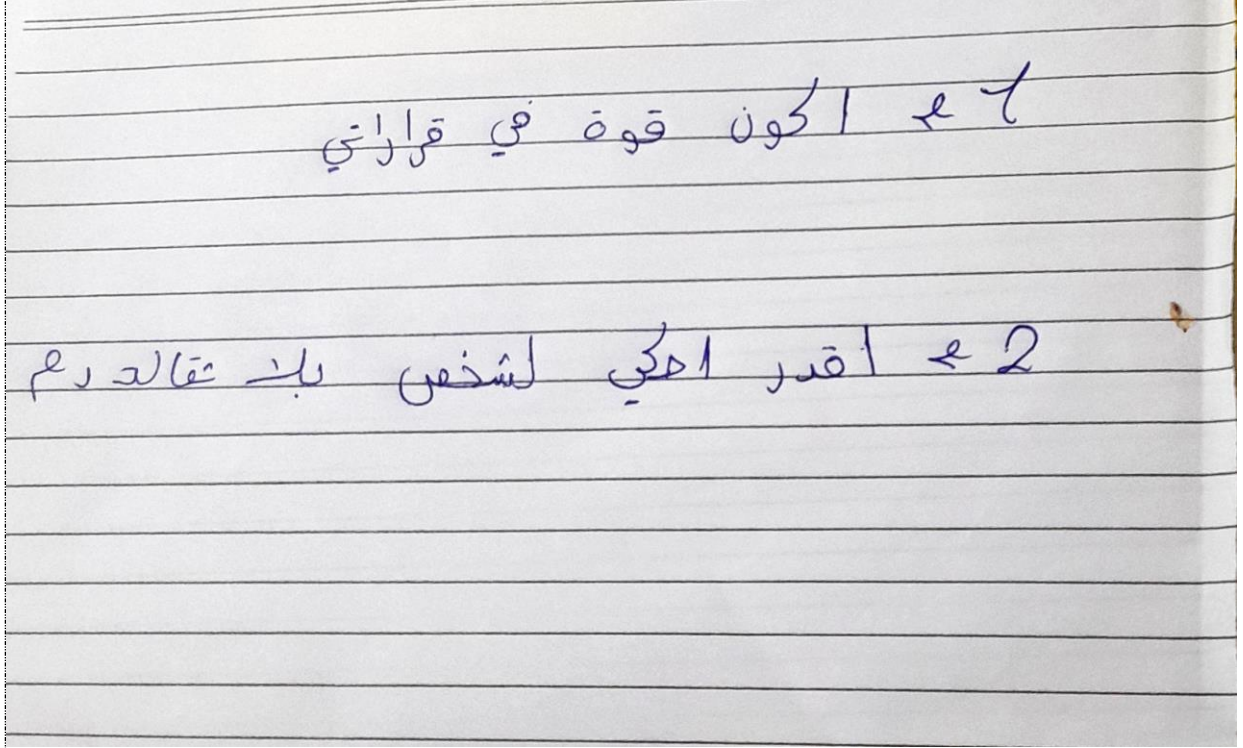 1 ـ اكون قوة في قراراتي
2 ـ اقدر احكي لشخص